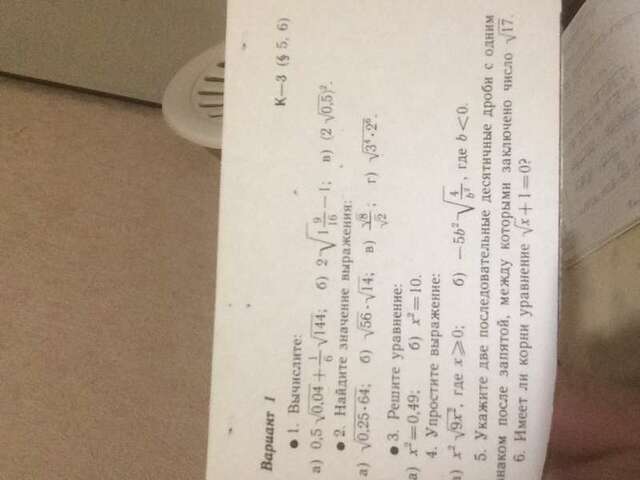 К—3 (§ 5, 6)
Вариант 1
● 1. Вычислите:
а) 0,5√0,04 + 1/6 √144; б) 2√(1 9/16) — 1; в) (2√0,5)².
● 2. Найдите значение выражения:
а) √(0,25·64); б) √56·√14; в) √8/√2; г) √(3⁴·2⁶).
● 3. Решите уравнение:
а) x²=0,49; б) x²=10.
4. Упростите выражение:
а) x²√(9x²), где x⩾0; б) —5b²√(4/b²), где b<0.
5. Укажите две последовательные десятичные дроби с одним
знаком после запятой, между которыми заключено число √17.
6. Имеет ли корни уравнение √x+1=0?